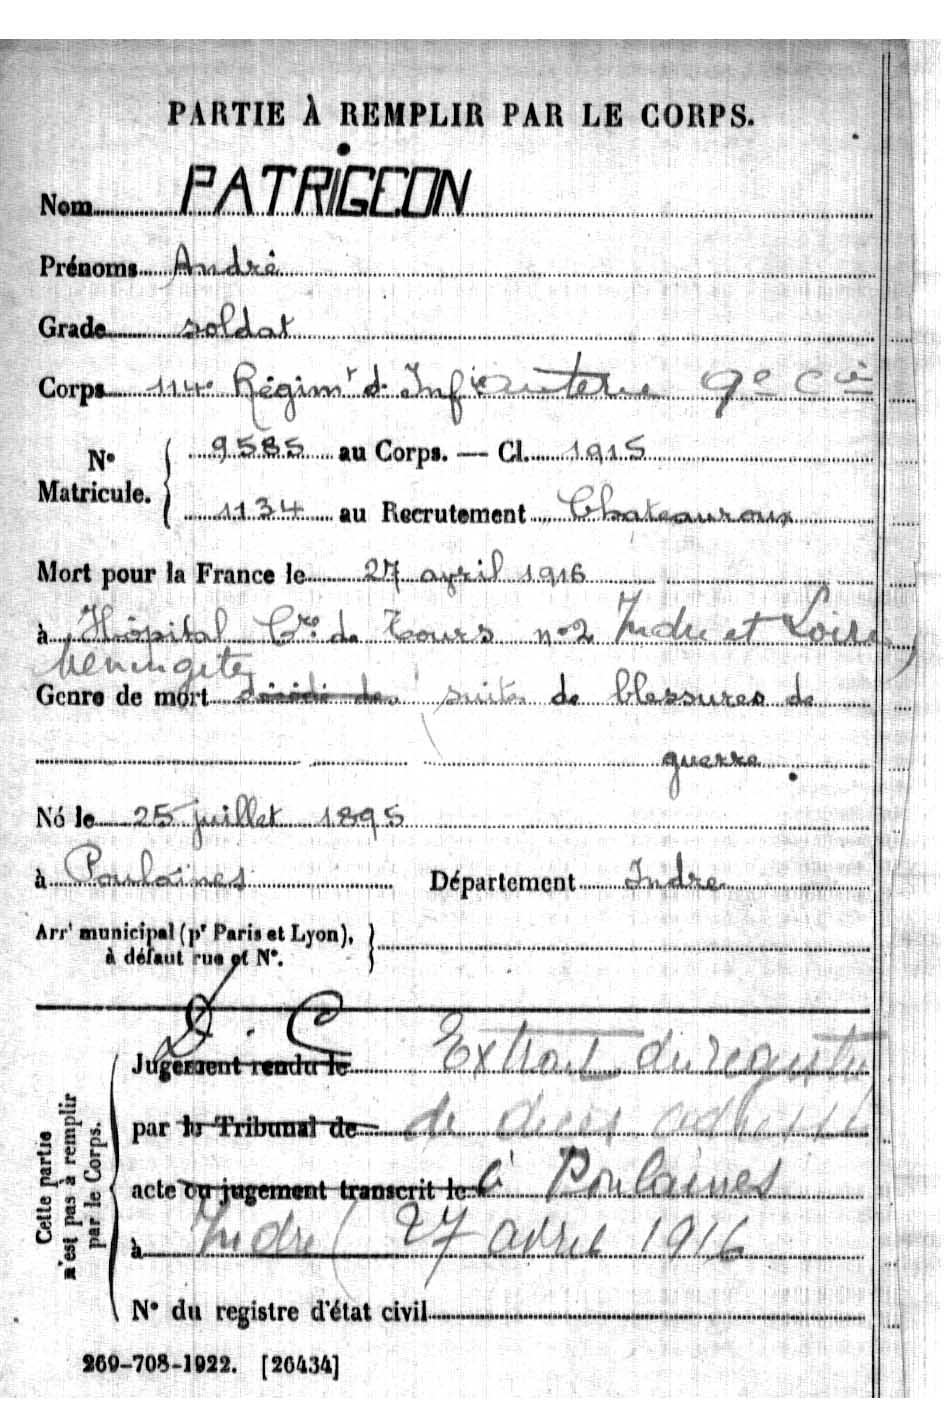 PARTIE À REMPLIR PAR LE CORPS.
Nom PATRIGEON
Prénoms André
Grade soldat
Corps 114e Régimt d'Infanterie 9e Cie
No Matricule. { 9585 au Corps. — Cl. 1915
1134 au Recrutement Chateauroux
Mort pour la France le 27 avril 1916
à Hôpital Cre de Tours no 2 Indre et Loire
Meningite
Genre de mort décédé des suites de blessures de
guerre.
Né le 25 juillet 1895
à Poulaines Département Indre
Arrt municipal (pr Paris et Lyon),
à défaut rue et No.
D. C
Jugement rendu le Extrait du registre
par le Tribunal de de décès adressé
acte ou jugement transcrit le à Poulaines
à Indre 27 avril 1916
No du registre d'état civil
Cette partie
n'est pas à remplir
par le Corps.
269-708-1922. [26434]